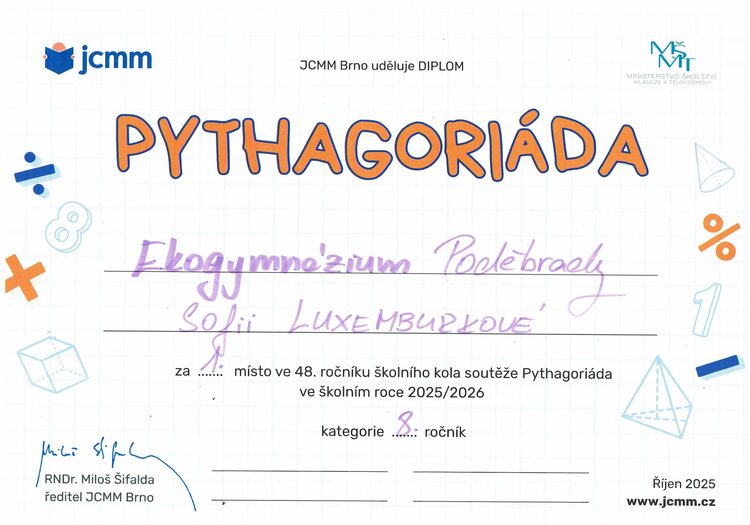 jcmm
JCMM Brno uděluje DIPLOM
MŠMT
MINISTERSTVO ŠKOLSTVÍ,
MLÁDEŽE A TĚLOVÝCHOVY
PYTHAGORIÁDA
Ekogymnázium Poděbrady
Sofii LUXEMBURKOVÉ
za 1. místo ve 48. ročníku školního kola soutěže Pythagoriáda
ve školním roce 2025/2026
kategorie 8. ročník
RNDr. Miloš Šifalda
ředitel JCMM Brno
Říjen 2025
www.jcmm.cz